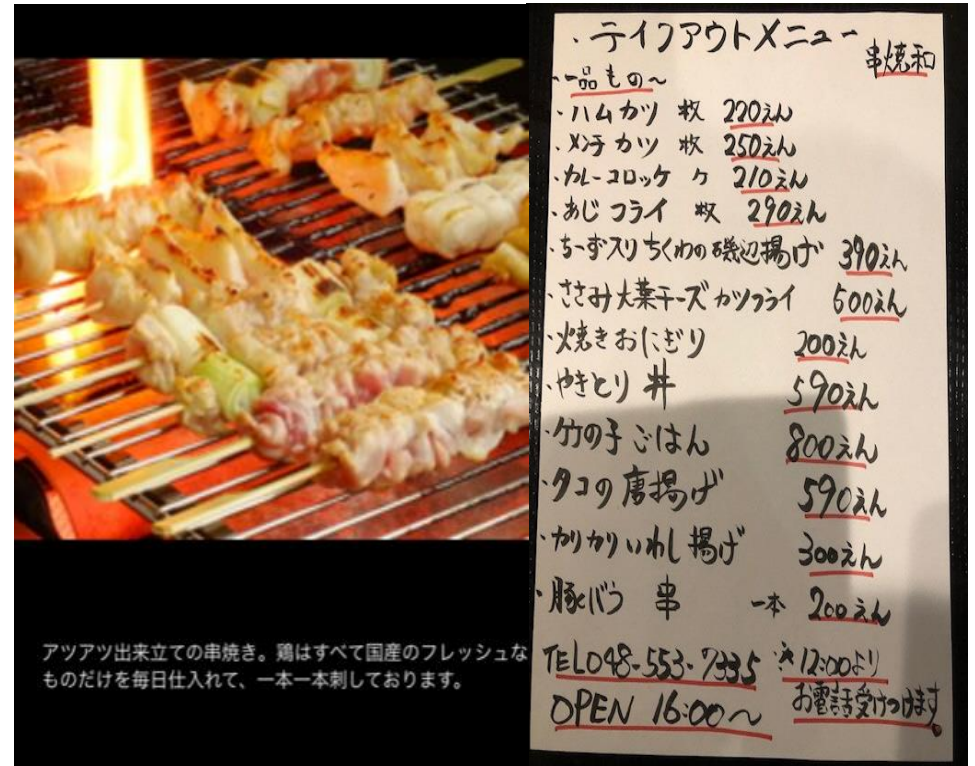 アツアツ出来立ての串焼き。鶏はすべて国産のフレッシュな
ものだけを毎日仕入れて、一本一本刺しております。
・テイクアウトメニュー
串焼和
・一品もの〜
・ハムカツ 枚 220えん
・メンチカツ 枚 250えん
・カレーコロッケ ケ 210えん
・あじフライ 枚 290えん
・ちーず入りちくわの磯辺揚げ 390えん
・ささみ大葉チーズカツフライ 500えん
・焼きおにぎり 200えん
・やきとり丼 590えん
・竹の子ごはん 800えん
・タコの唐揚げ 590えん
・カリカリいわし揚げ 300えん
・豚バラ串 一本 200えん
TEL048-553-7335 ※12:00より
OPEN 16:00〜 お電話受けつけます。